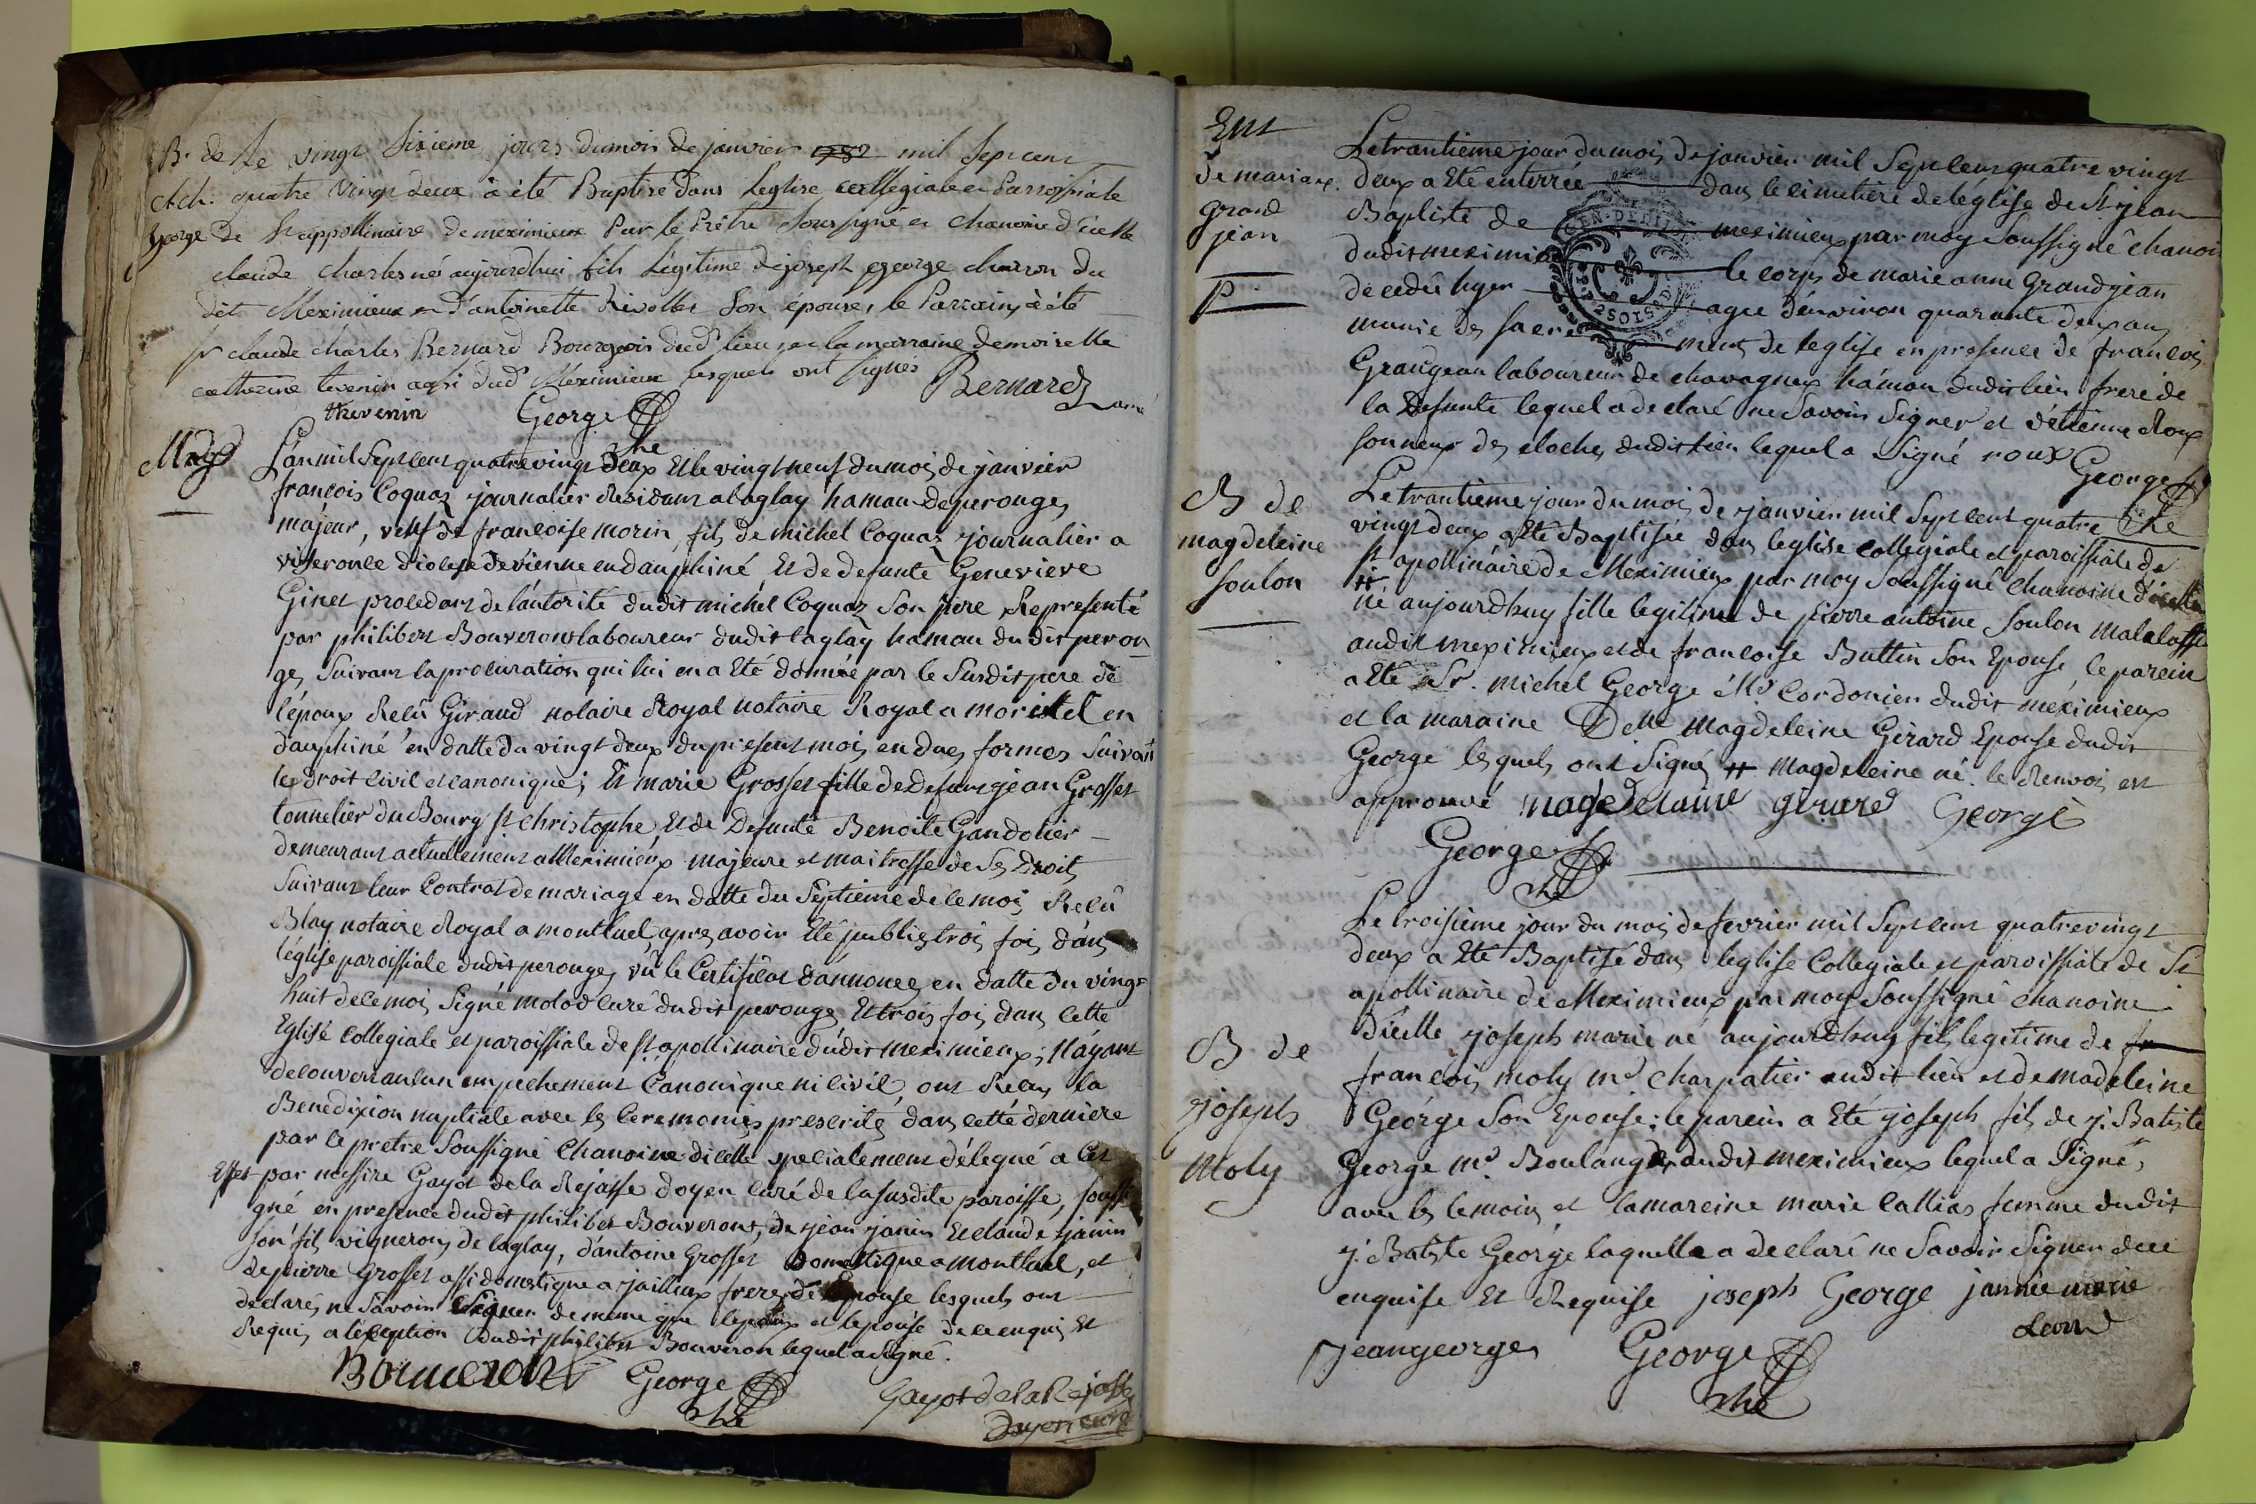 B. de Le vingt sixieme jours du mois de janvier 1782 mil sept cent
ch. quatre vingt deux à été Baptisé dans L'eglise collegiale et Parroissiale
george de St appollinaire de meximieux Par le Prêtre soussigné et chanoine d'icelle
claude charles né aujourdhui fils Légitime de joseph george charron du
dit Meximieux et d'antoinette Rivollet son épouse, le Parrain à été
sr claude charles Bernard Bourgeois dud. lieu, et la marraine demoiselle
catherine tevenin aussi dud. Méximieux lesquels ont signés
thevenin George che Bernard
Mage
L'an mil sept cent quatre vingt deux et le vingt neuf du mois de janvier
francois Coquaz journalier Residant a laglay hamau de perouges
majeur, veuf de francoise morin, fils de michel Coquaz journalier a
diocese de vienne en dauphiné, et de defunte Genevieve
Ginet procedant de l'autorité dudit michel Coquaz son pere Representé
par philibert Bouveront laboureur dudit laglay hamau dudit perou
ges suivant la procuration qui lui en a été donnée par le susdit pere de
l'époux Relu Giraud notaire Royal notaire Royal a morestel en
dauphiné en datte du vingt deux du present mois en dues formes suivant
le droit civil et canonique; Et marie Grosset fille de defunt jean Grosset
tonnelier du Bourg st christophe et de defunte Benoite Gandolier
demeurant actuellement a Meximieux majeure et maitresse de ses droits
suivant leur Contrat de mariage en datte du septieme de ce mois Relu
Blay notaire Royal a montluel, apres avoir été publiés trois fois dans
l'église paroissiale dudit perouges vû le Certificat d'annonces en datte du vingt
huit de ce mois signé molod curé dudit perouges et trois fois dans cette
Eglise collegiale et paroissiale de st apollinaire dudit meximieux; N'ayant
decouvert aucun empechement Canonique ni civil, ont Relu la
Benediction nuptiale avec les Ceremonies prescrites dans cette derniere
par le pretre soussigné Chanoine dicelle specialement délegué a cet
Effet par messire Gayot de la Rejasse doyen curé de la susdite paroisse, soussi
gné en presence dudit philibet Bouveront, de jean janin et claude janin
son fils vignerons de laglay, d'antoine Grosset Domestique a montluel, et
de pierre Grosset assi domestique a jailleux freres de L'epouse lesquels ont
declarés ne savoir signer de meme que l'epoux et l'epouse de ce enquis et
Requis a l'exeption dudit philibert Bouveron lequel a signé.
Bouveron George che Gayot de la Rejasse
Doyen curé
Ent
de mariane
grand
jean
p
Le trantieme jour du mois de janvier mil sept cent quatre vingt
deux a été enterrée dans le cimetiere de l'église de st jean
Baptiste de meximieux par moy soussigné chanoi
dudit meximi le corps de marie anne Grandjean
decedée hyer agée d'environ quarante deux ans
munie des sacre ments de l'eglise en presence de francois
Grangean laboureur de chavagneux hamau dudit lieu frere de
la defunte lequel a declaré ne savoir signer et d'étienne Roux
sonneur des cloches dudit lieu lequel a signé roux George che
B de
magdeleine
soulon
Le trantieme jour du mois de janvier mil sept cent quatre
vingt deux a été Baptisée dans leglise collegiale et paroissiale de
st apollinaire de Meximieux par moy soussigné chanoine dicelle
# né aujourdhuy fille legitime de pierre antoine soulon
audit meximieux et de francoise Buttin son Epouse, le parein
a été Sr. michel George Md Cordonier dudit meximieux
et la maraine Delle magdeleine Girard Epouse dudit
George lesquels ont signés # Magdeleine né. le Renvoi est
approuvé magdelaine girard George
George che
B. de
joseph
Moly
Le troisieme jour du mois de fevrier mil sept cent quatrevingt
deux a été Baptisé dans leglise Collegiale et paroissiale de st
apollinaire de Meximieux par moy soussigné chanoine
dicelle joseph marie né aujourdhuy fils legitime de fr
francois moly md charpatier audit lieu et de madeleine
George son Epouse; le parein a Eté joseph fils de j. Batiste
George md Boulanger dudit meximieux lequel a signé
avec les temoins et la mareine marie callias femme dudit
j. Batiste George laquelle a declaré ne savoir signer de ce
enquise Et Requise joseph George jannie marie
jeangeorges George che